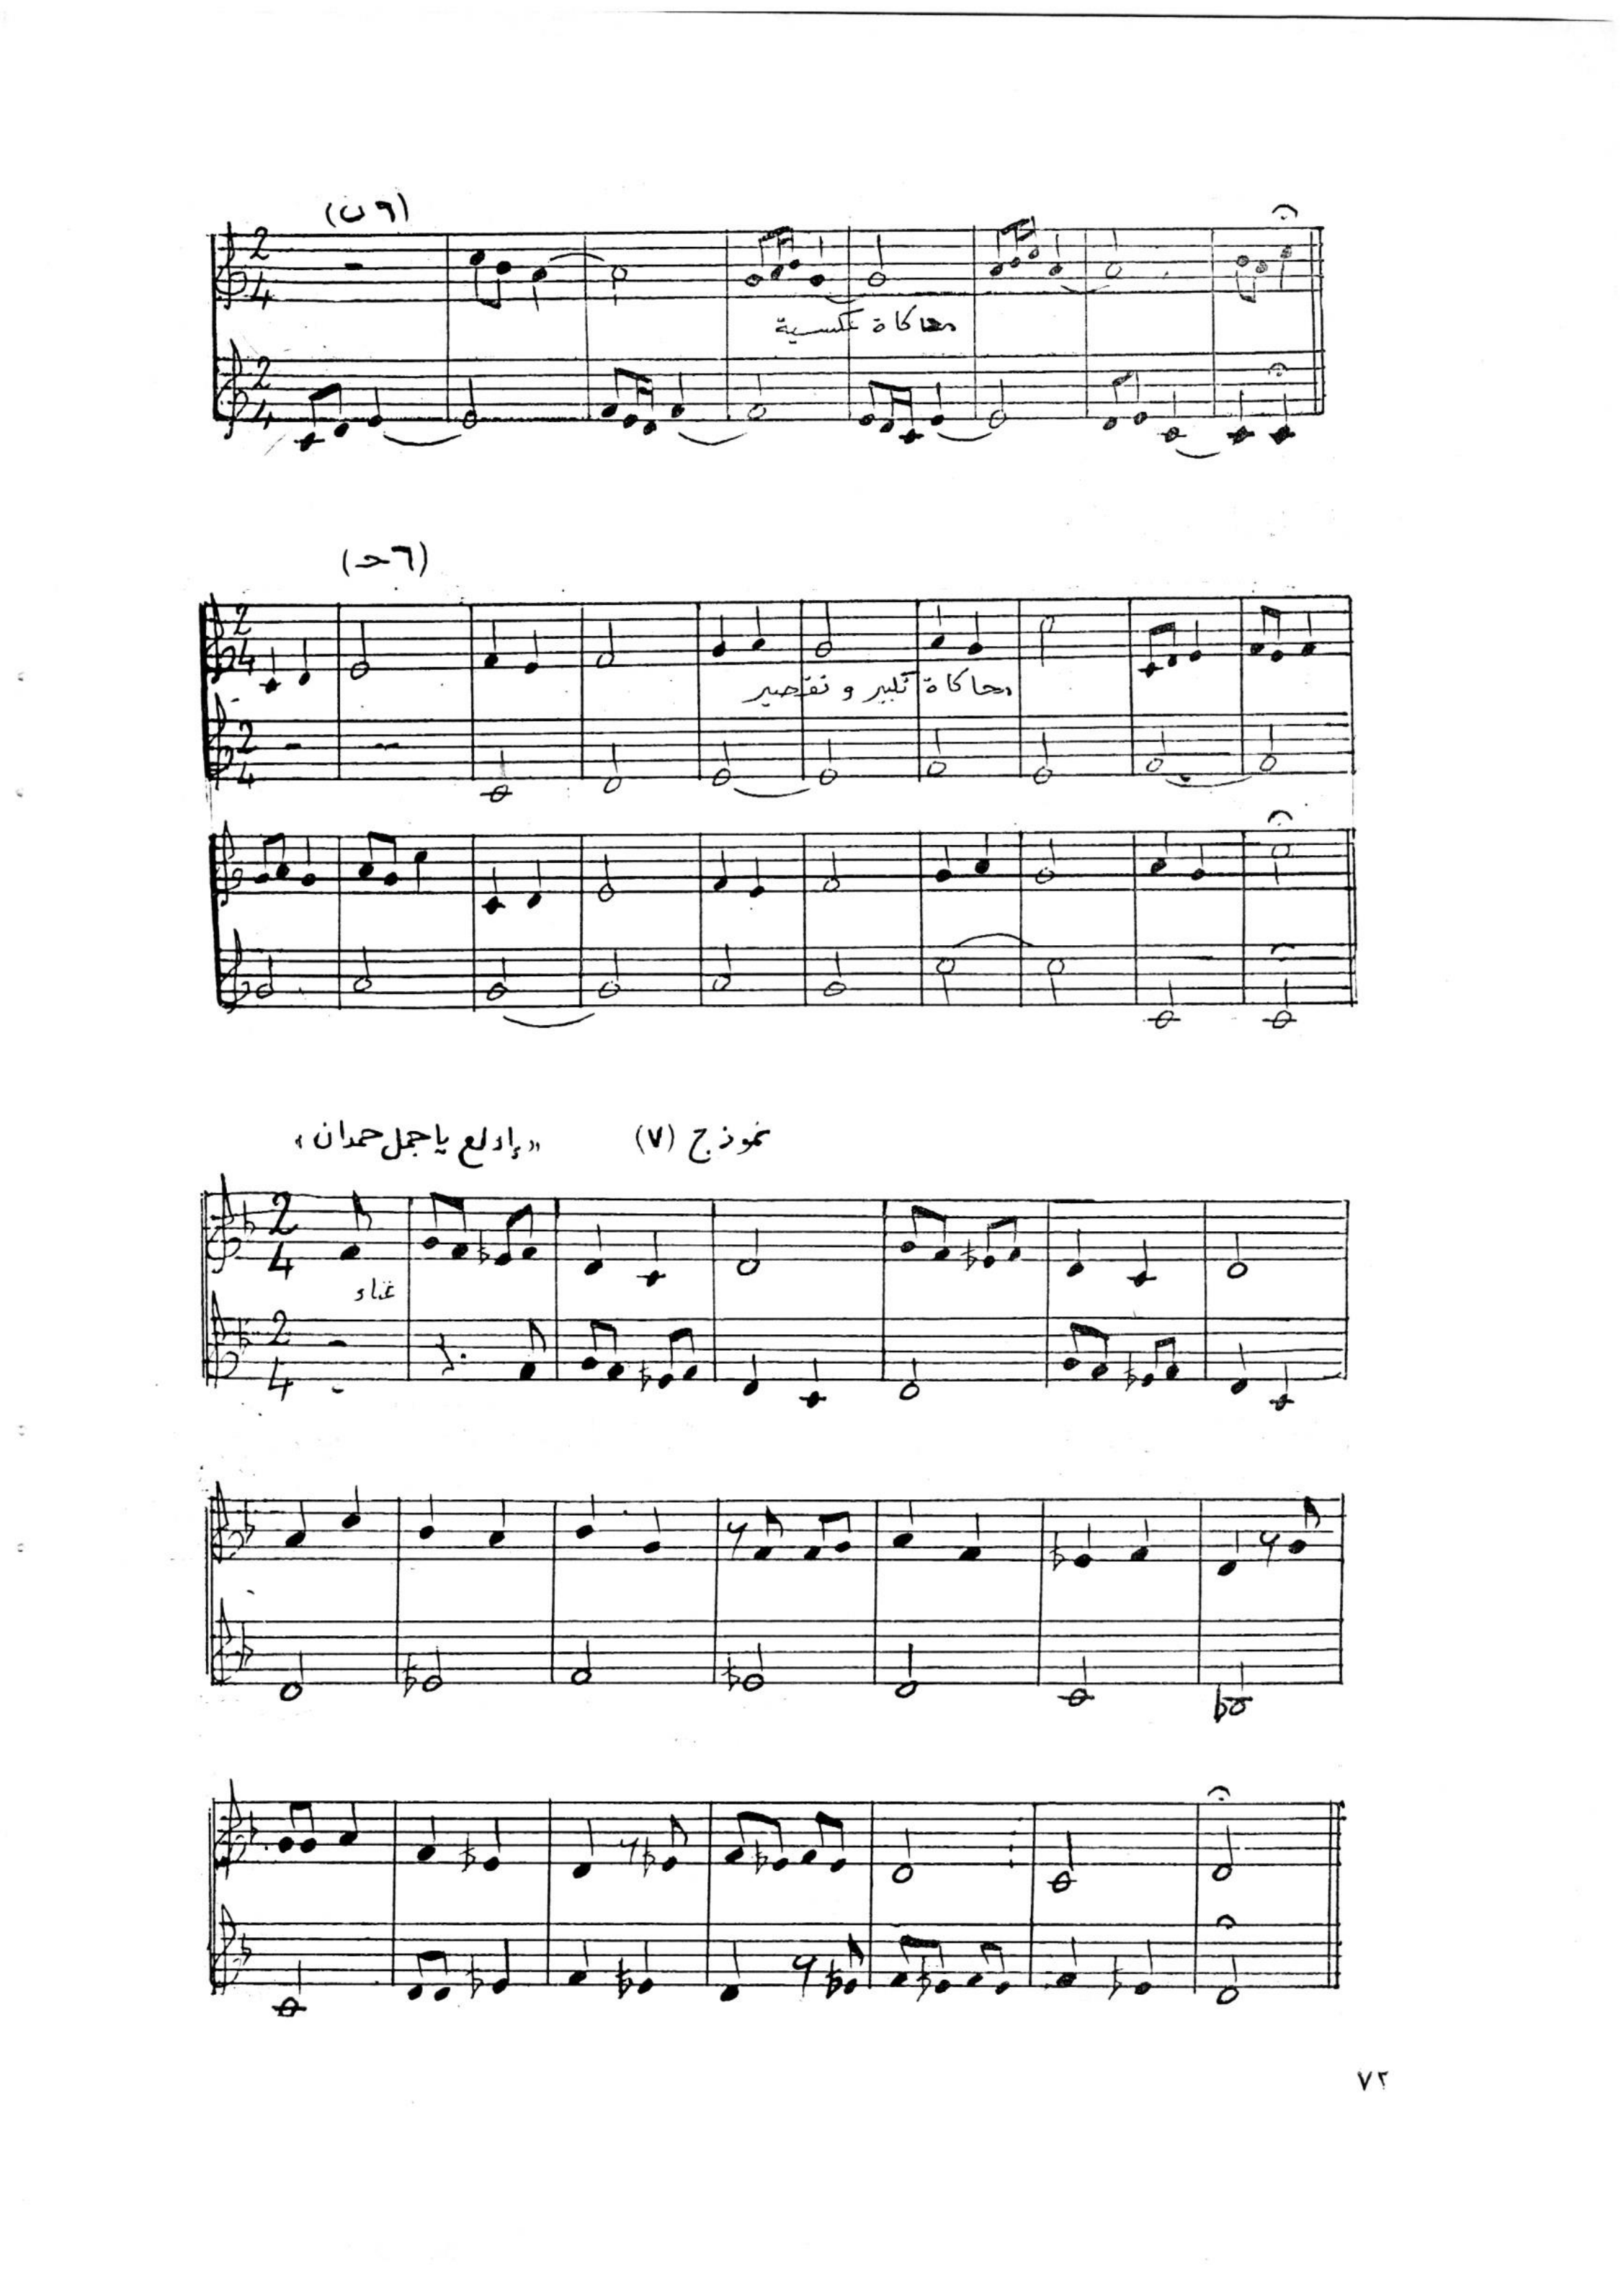 (٦ ب)
محاكاة عكسية
(٦ حـ)
محاكاة تكبير و تقصير
نموذج (٧) «إدلع يا جمل حمدان»
غناء
٧٢